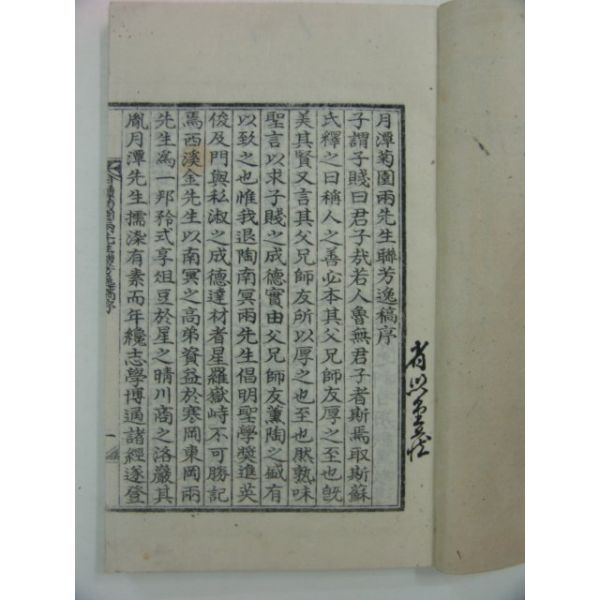 月潭菊園兩先生聯芳逸稿序
子謂子賤曰君子哉若人魯無君子者斯焉取斯蘇
氏釋之曰稱人之善必本其父兄師友厚之至也旣
美其賢又言其父兄師友所以厚之也至也猒熟味
聖言以求子賤之成德實由父兄師友薰陶之盛有
以致之也惟我退陶南冥兩先生倡明聖學奬進英
俊及門與私淑之成德達材者星羅嶽峙不可勝記
焉西溪金先生以南冥之高弟資益於寒岡東岡兩
先生爲一邦矜式享俎豆於星之晴川商之洛巖其
胤月潭先生擩染有素而年纔志學博通諸經遂登